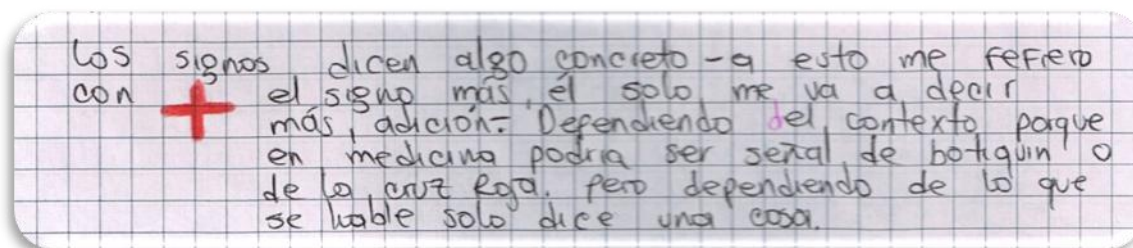 los signos dicen algo concreto - a esto me refiero
con + el signo más, él solo me va a decir
más, adición-. Dependiendo del contexto porque
en medicina podría ser señal de botiquín o
de la cruz Roja. pero dependiendo de lo que
se hable solo dice una cosa.